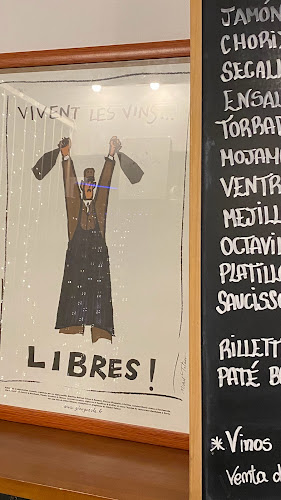 VIVENT LES VINS...
LIBRES!
JAMÓN
CHORIZ
SEGALL
ENSAL
TORRAD
MOJAM
VENTR
MEJILL
OCTAVIL
PLATILL
SAUCISSO
RILLETT
PATÉ B
*Vinos
Venta d